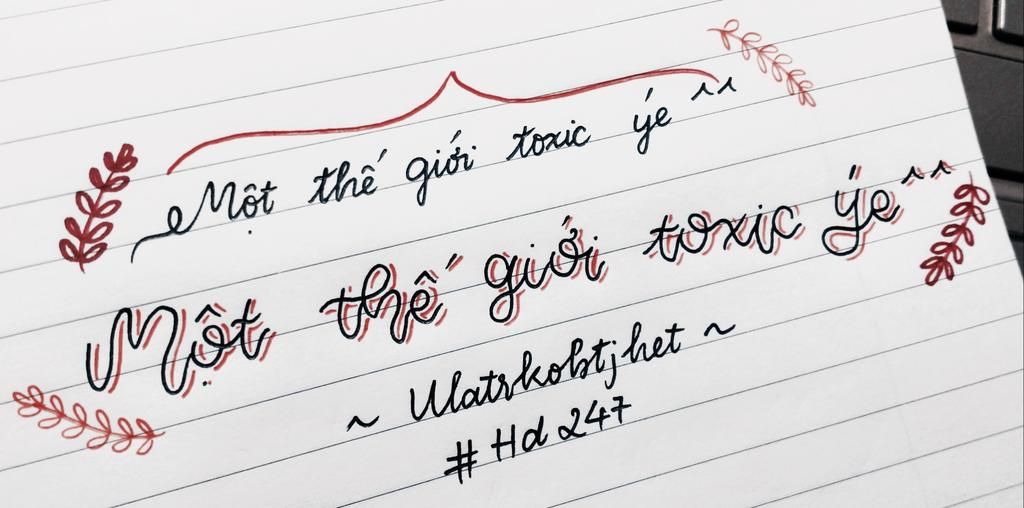 Một thế giới toxic ýe ^^
Một thế giới toxic ýe ^^
~ Ulatrkobtjhet ~
# Hd 247